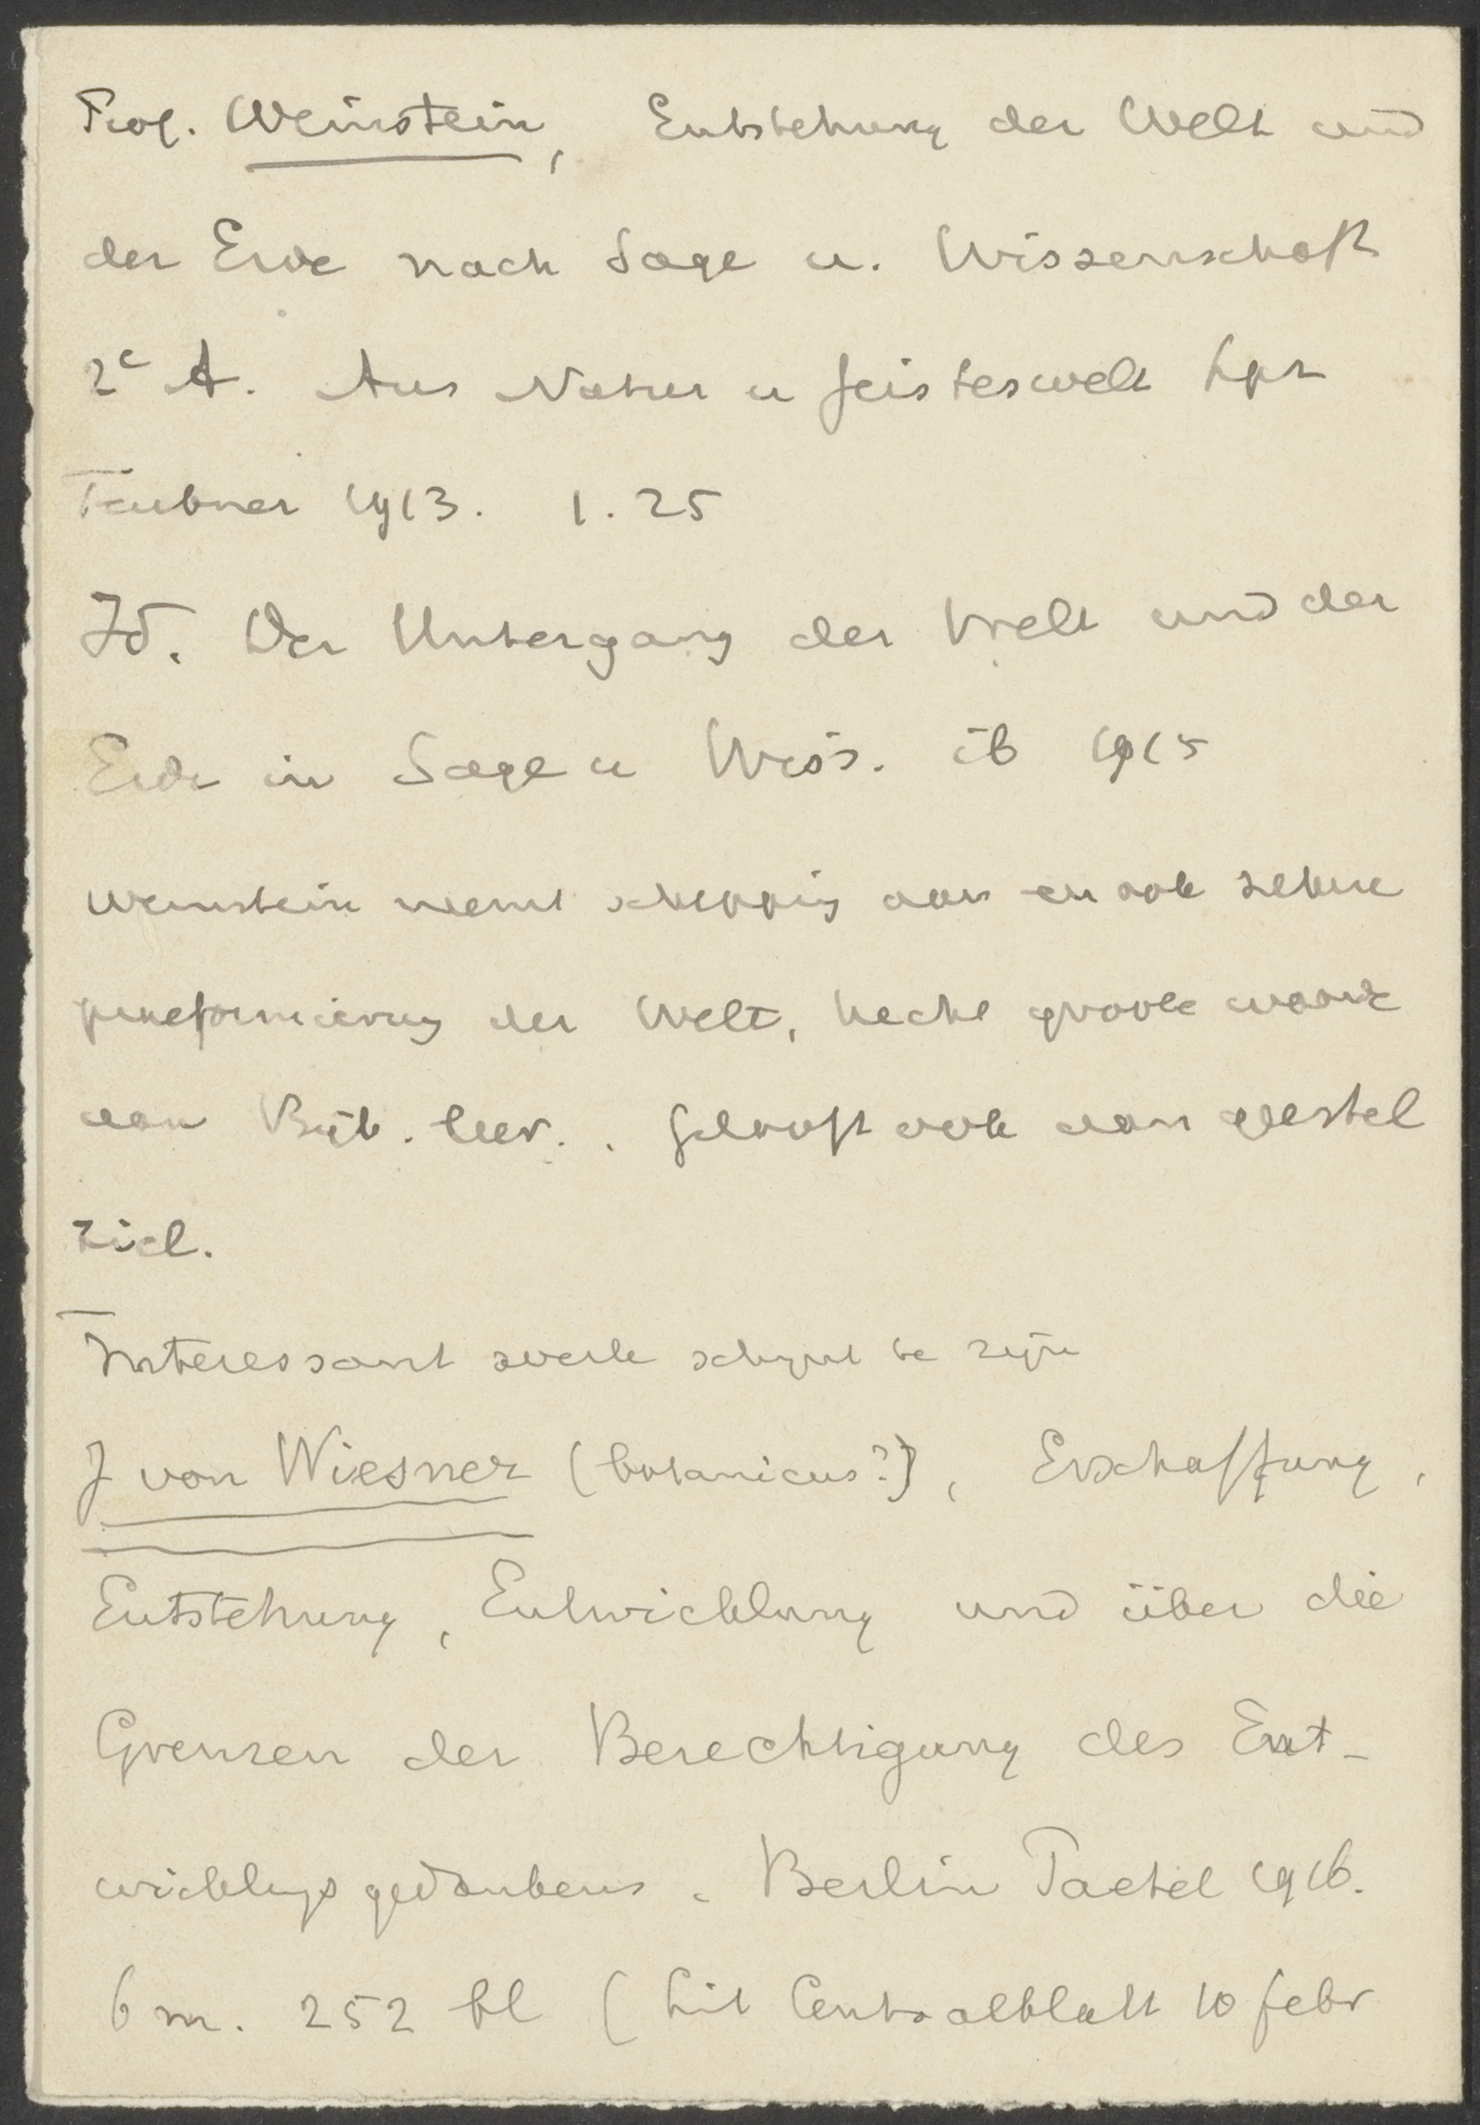 Prof. Weinstein, Entstehung der Welt und
der Erde nach Sage u. Wissenschaft
2e A. Aus Natur u Geisteswelt Lpz
Teubner 1913. 1.25
Id. Der Untergang der Welt und der
Erde in Sage u Wiss. ib 1915
Weinstein neemt schepping aan en ook zekere
praeformierung der Welt, hecht groote waarde
aan Bijb. leer. Gelooft ook aan
ziel.
Interessant werk schijnt te zijn
J von Wiesner (botanicus?), Erschaffung,
Entstehung, Entwicklung und über die
Grenzen der Berechtigung des Ent-
wicklugsgedankens. Berlin Paetel 1916.
6 m. 252 bl (Lit Centralblatt 10 febr